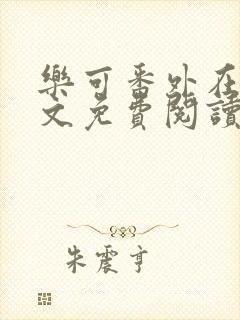 樂可番外在
文免費閱讀
朱震亨